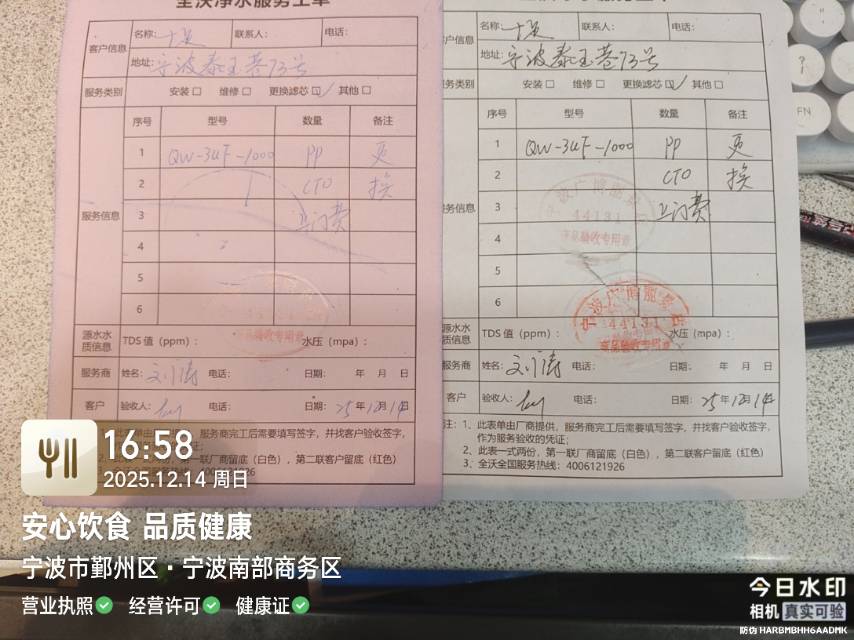 全沃净水服务工单
客户信息 名称: 联系人: 电话:
地址: 宁波泰玉巷73号
服务类别 安装□ 维修□ 更换滤芯☑ 其他□
序号 型号 数量 备注
1 QW-34F-1000 PP 更
2 CTO 换
服务信息 3 上门费
4
5
6
源水水质信息 TDS值(ppm): 水压(mpa):
服务商 姓名: 刘涛 电话: 日期: 年 月 日
客户 验收人: 电话: 日期: 25年12月14日
此表单由厂商提供,服务商完工后需要填写签字,并找客户验收签字,
一式两份,第一联厂商留底(白色),第二联客户留底(红色)
4006121926
名称: 联系人: 电话:
客户信息
地址: 宁波泰玉巷73号
服务类别 安装□ 维修□ 更换滤芯☑ 其他□
序号 型号 数量 备注
1 QW-34F-1000 PP 更
2 CTO 换
服务信息 3 上门费
4
5
6
44131
验收专用章
44131
验收专用章
源水水质信息 TDS值(ppm): 水压(mpa):
服务商 姓名: 刘涛 电话: 日期: 年 月 日
客户 验收人: 电话: 日期: 25年12月14
注:1、此表单由厂商提供,服务商完工后需要填写签字,并找客户验收签字,
作为服务验收的凭证;
2、此表一式两份,第一联厂商留底(白色),第二联客户留底(红色)
3、全沃全国服务热线:4006121926
?
FN
16:58
2025.12.14 周日
安心饮食 品质健康
宁波市鄞州区·宁波南部商务区
营业执照 经营许可 健康证
今日水印
相机 真实可验
防伪 HARBMBHH6AADMK